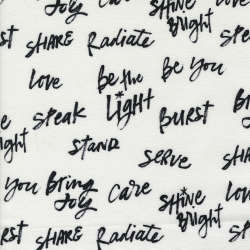 Bring Joy Care Shine Bright
Burst SHARE Radiate
Love Be the Be You
LIGHT
Shine Bright speak BURST
STAND
serve
You Bring Joy Care SHiNE Bright
Burst SHARE Radiate